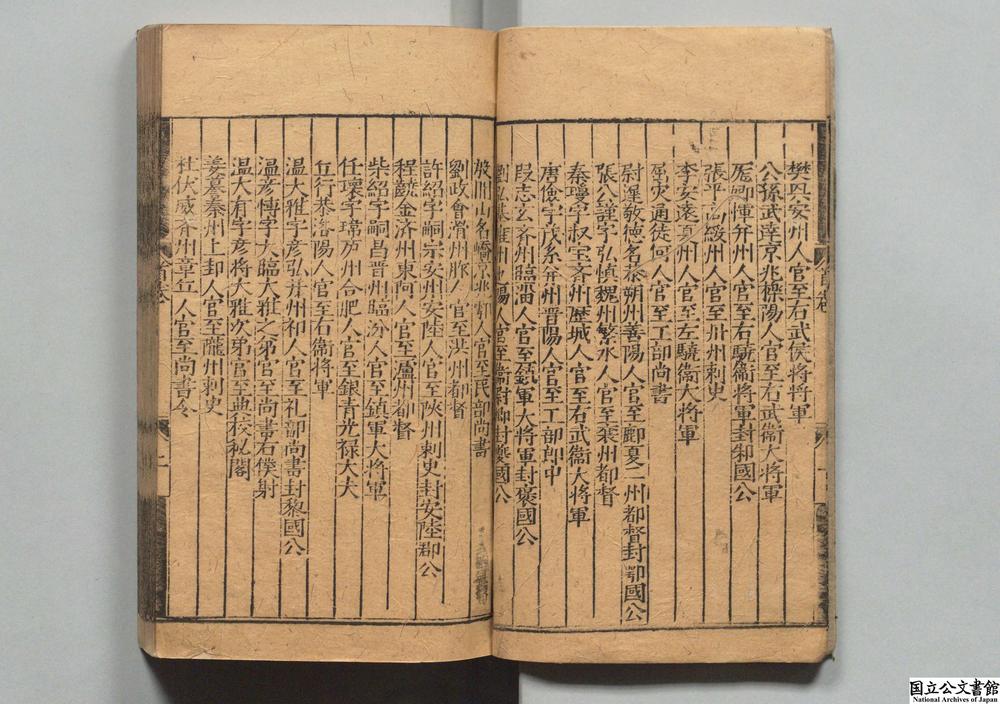 樊興安州人官至右武侯將將軍
公孫武達京兆櫟陽人官至右武衛大將軍
龐卿惲并州人官至右驍衛將軍封邾國公
張平高綏州人官至丱州刺史
李安遠夏州人官至左驍衛大將軍
屈突通徒何人官至工部尚書
尉遲敬德名恭朔州善陽人官至鄜夏二州都督封鄂國公
張公謹字弘慎魏州繁水人官至襄州都督
秦瓊字叔宝齐州歷城人官至右武衛大將軍
唐儉字茂系并州晋陽人官至工部郎中
段志玄齐州臨淄人官至鎮軍大將軍封襃國公
劉弘基雍州池陽人官至衛尉卿封夔國公
殷開山名嶠京兆鄠人官至民部尚書
劉政會滑州胙人官至洪州都督
許紹字嗣宗安州安陸人官至陝州刺史封安陸郡公
程齩金济州東向人官至瀘州都督
柴紹字嗣昌晋州臨汾人官至鎮軍大將軍
任瓌字瑋庐州合肥人官至銀青光禄大夫
丘行恭洛陽人官至右衛將軍
温大雅字彦弘并州祁人官至礼部尚書封黎國公
温彦博字大臨大雅之弟官至尚書右僕射
温大有字彦將大雅次弟官至典校祕閣
姜謩秦州上邽人官至隴州刺史
杜伏威齐州章丘人官至尚書令
首卷
一
首卷
二
国立公文書館
National Archives of Japan